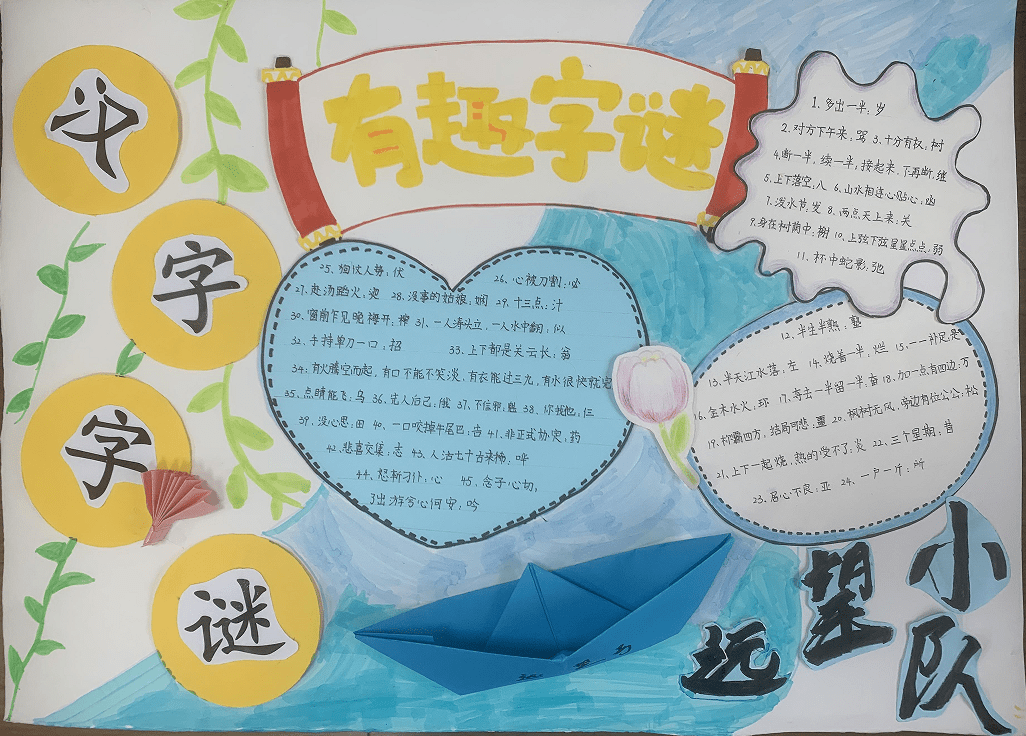 有趣字谜
斗
字
字
谜
1.多出一半:岁
2.对方下午来:骂 3.十分有权:树
4.断一半,续一半;接起来,了再断:继
5.上下落空:八 6.山水相连心贴心:幽
7.泼水节:发 8.两点天上来:关
9.身在树荫中:榭 10.上弦下弦星星点点:弱
11.杯中蛇影:弛
12.半生半熟:塾
13.半天江水落:左 14.烧着一半:烂 15.一一补足是
16.金木水火:坏 17.等去一半留一半:畜 18.加一点有四边:万
19.称霸四方,结局可悲: 20.枫树无风,旁边有位公公:松
21.上下一起烧,热的受不了:炎 22.三个星期:昔
23.居心不良:亚 24.一户一斤:所
25.狗仗人势:伏
26.心被刀割:必
27.赴汤蹈火: 28.没事的姑娘:娴 29.十三点:汁
30.窗前乍见晚梅开:榨 31.一人岸头立,一人水中翻:似
32.手持单刀一口:招 33.上下都是关云长:翁
34.有火腾空而起,有口不能不笑谈,有衣能过三九,有水很快就完
35.点睛能飞:乌 36.先人后己:俄 37.不信邪:魁 38.你我他:仨
39.没心思:田 40.一口咬掉牛尾巴:告 41.非正式协定:药
42.悲喜交集:志 43.人活七十古来稀:哗
44.怒斩刁仆:心 45.念子心切,
了出游兮心何安:吟
远
望
小
队